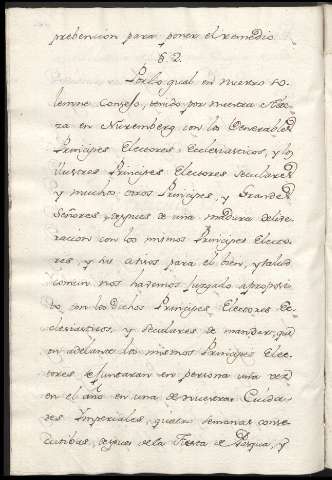 prebención para poner el remedio.
§ 2.
Por lo qual en nuestro so-
lemne Consejo, tenido por nuestra
za en Nuremberg con los Venerables
Principes Electores Ecclesiasticos, y los
Ilustres Principes Electores Seculares
y muchos otros Principes, y Grandes
Señores, despues de una madura delibe-
racion con los mismos Principes Electo-
res y los otros para el bien, y salud
comun nos hademos juzgado aproposi-
do con los dichos Principes Electores Ec-
clesiasticos, y Seculares de mandar, que
en adelante los mismos Principes Elec-
tores se juntaran en persona una vez
en el año en una de nuestras Ciuda-
des Imperiales, quatro semanas conse-
cutibas, despues de la Fiesta de Pasqua, y